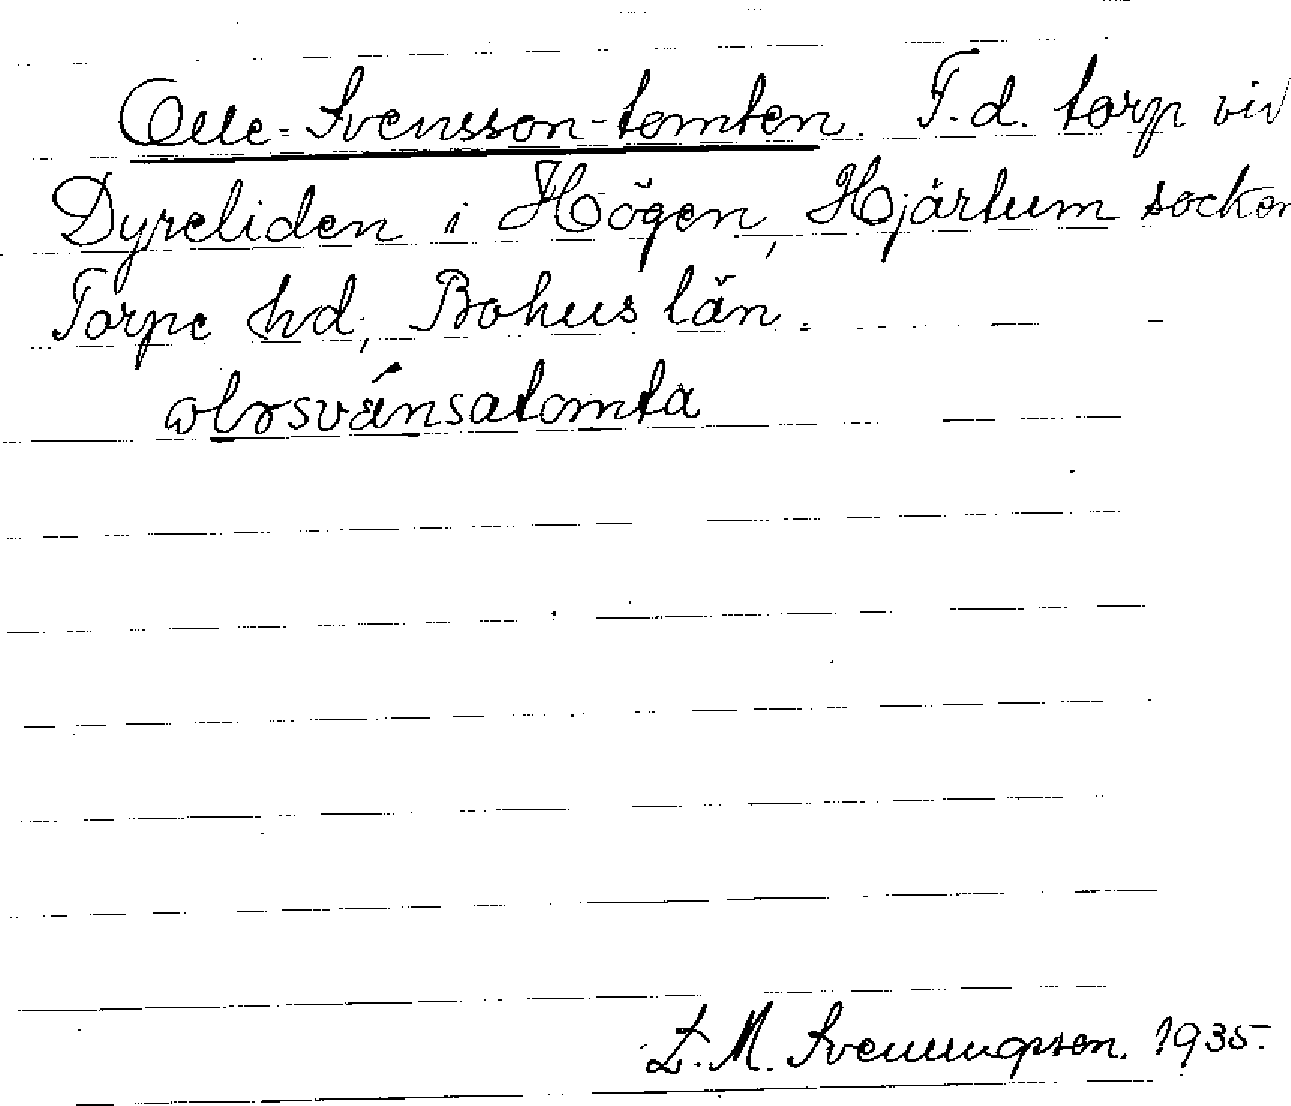 Olle-Svensson-tomten. F.d. torp vid
Dyreliden i Högen, Hjärtum socken
Torpe hd, Bohus län.
ωlɤsvánsatomta
Z. M. Svenungsson. 1935.